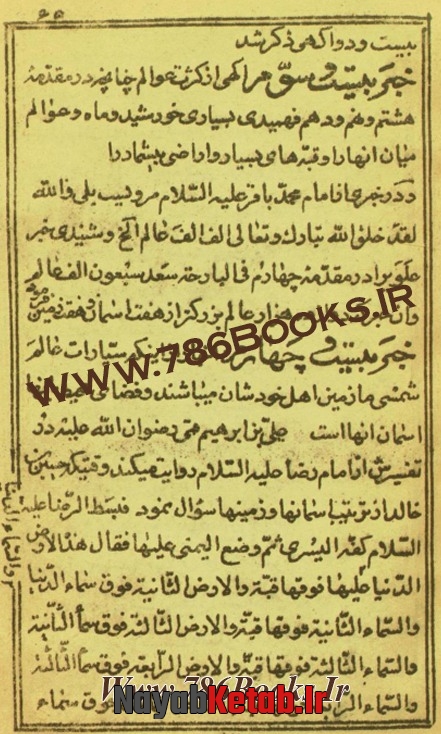 ۶۶
بیست و دو آگهی ذکر شد
خبر بیست و سوّم آگهی از کثرت عوالم چنانچه در مقدّمهٔ
هشتم و نهم و دهم فهمیدی بسیاری خورشید و ماه و عوالم
میان انها را و قبّه های بسیار و اراضی بیشمار را
و در خبری از امام محمّد باقر علیه السّلام مرویست بلی والله
لقد خلق الله تبارک و تعالی الف الف عالم الخ و شنیدی خبر
علوی را در مقدّمهٔ چهارم فی البارحة سبعون الف عالم
هزار عالم بزرگتر از هفت اسمان و هفت زمین
خبر بیست و چهارم سیّارات عالم
شمسی ما زمین اهل خودشان میباشند و فضای
اسمان انها است علیّ بن ابرهیم قمی رضوان الله علیه در
تفسیرش از امام رضا علیه السّلام روایت میکند وقتیکه حسین بن
خالد از ترتیب اسمانها و زمینها سؤال نمود فبسط الرّضا علیه
السّلام کفّه الیسری ثمّ وضع الیمنی علیها فقال هذا الارض
الدّنیا علیها فوقها قبّة والارض الثّانیة فوق سماء الدّنیا
والسّماء الثّانیة فوقها قبّة والارض الثّالثة فوق سماء الثّانیة
والسّماء الثّالثة فوقها قبّة والارض الرّابعة فوق سماء الثّالثة
والسّماء الرّابعة فوق سماء
WWW.786BOOKS.IR
Www.786Books.Ir
NayabKetab.Ir